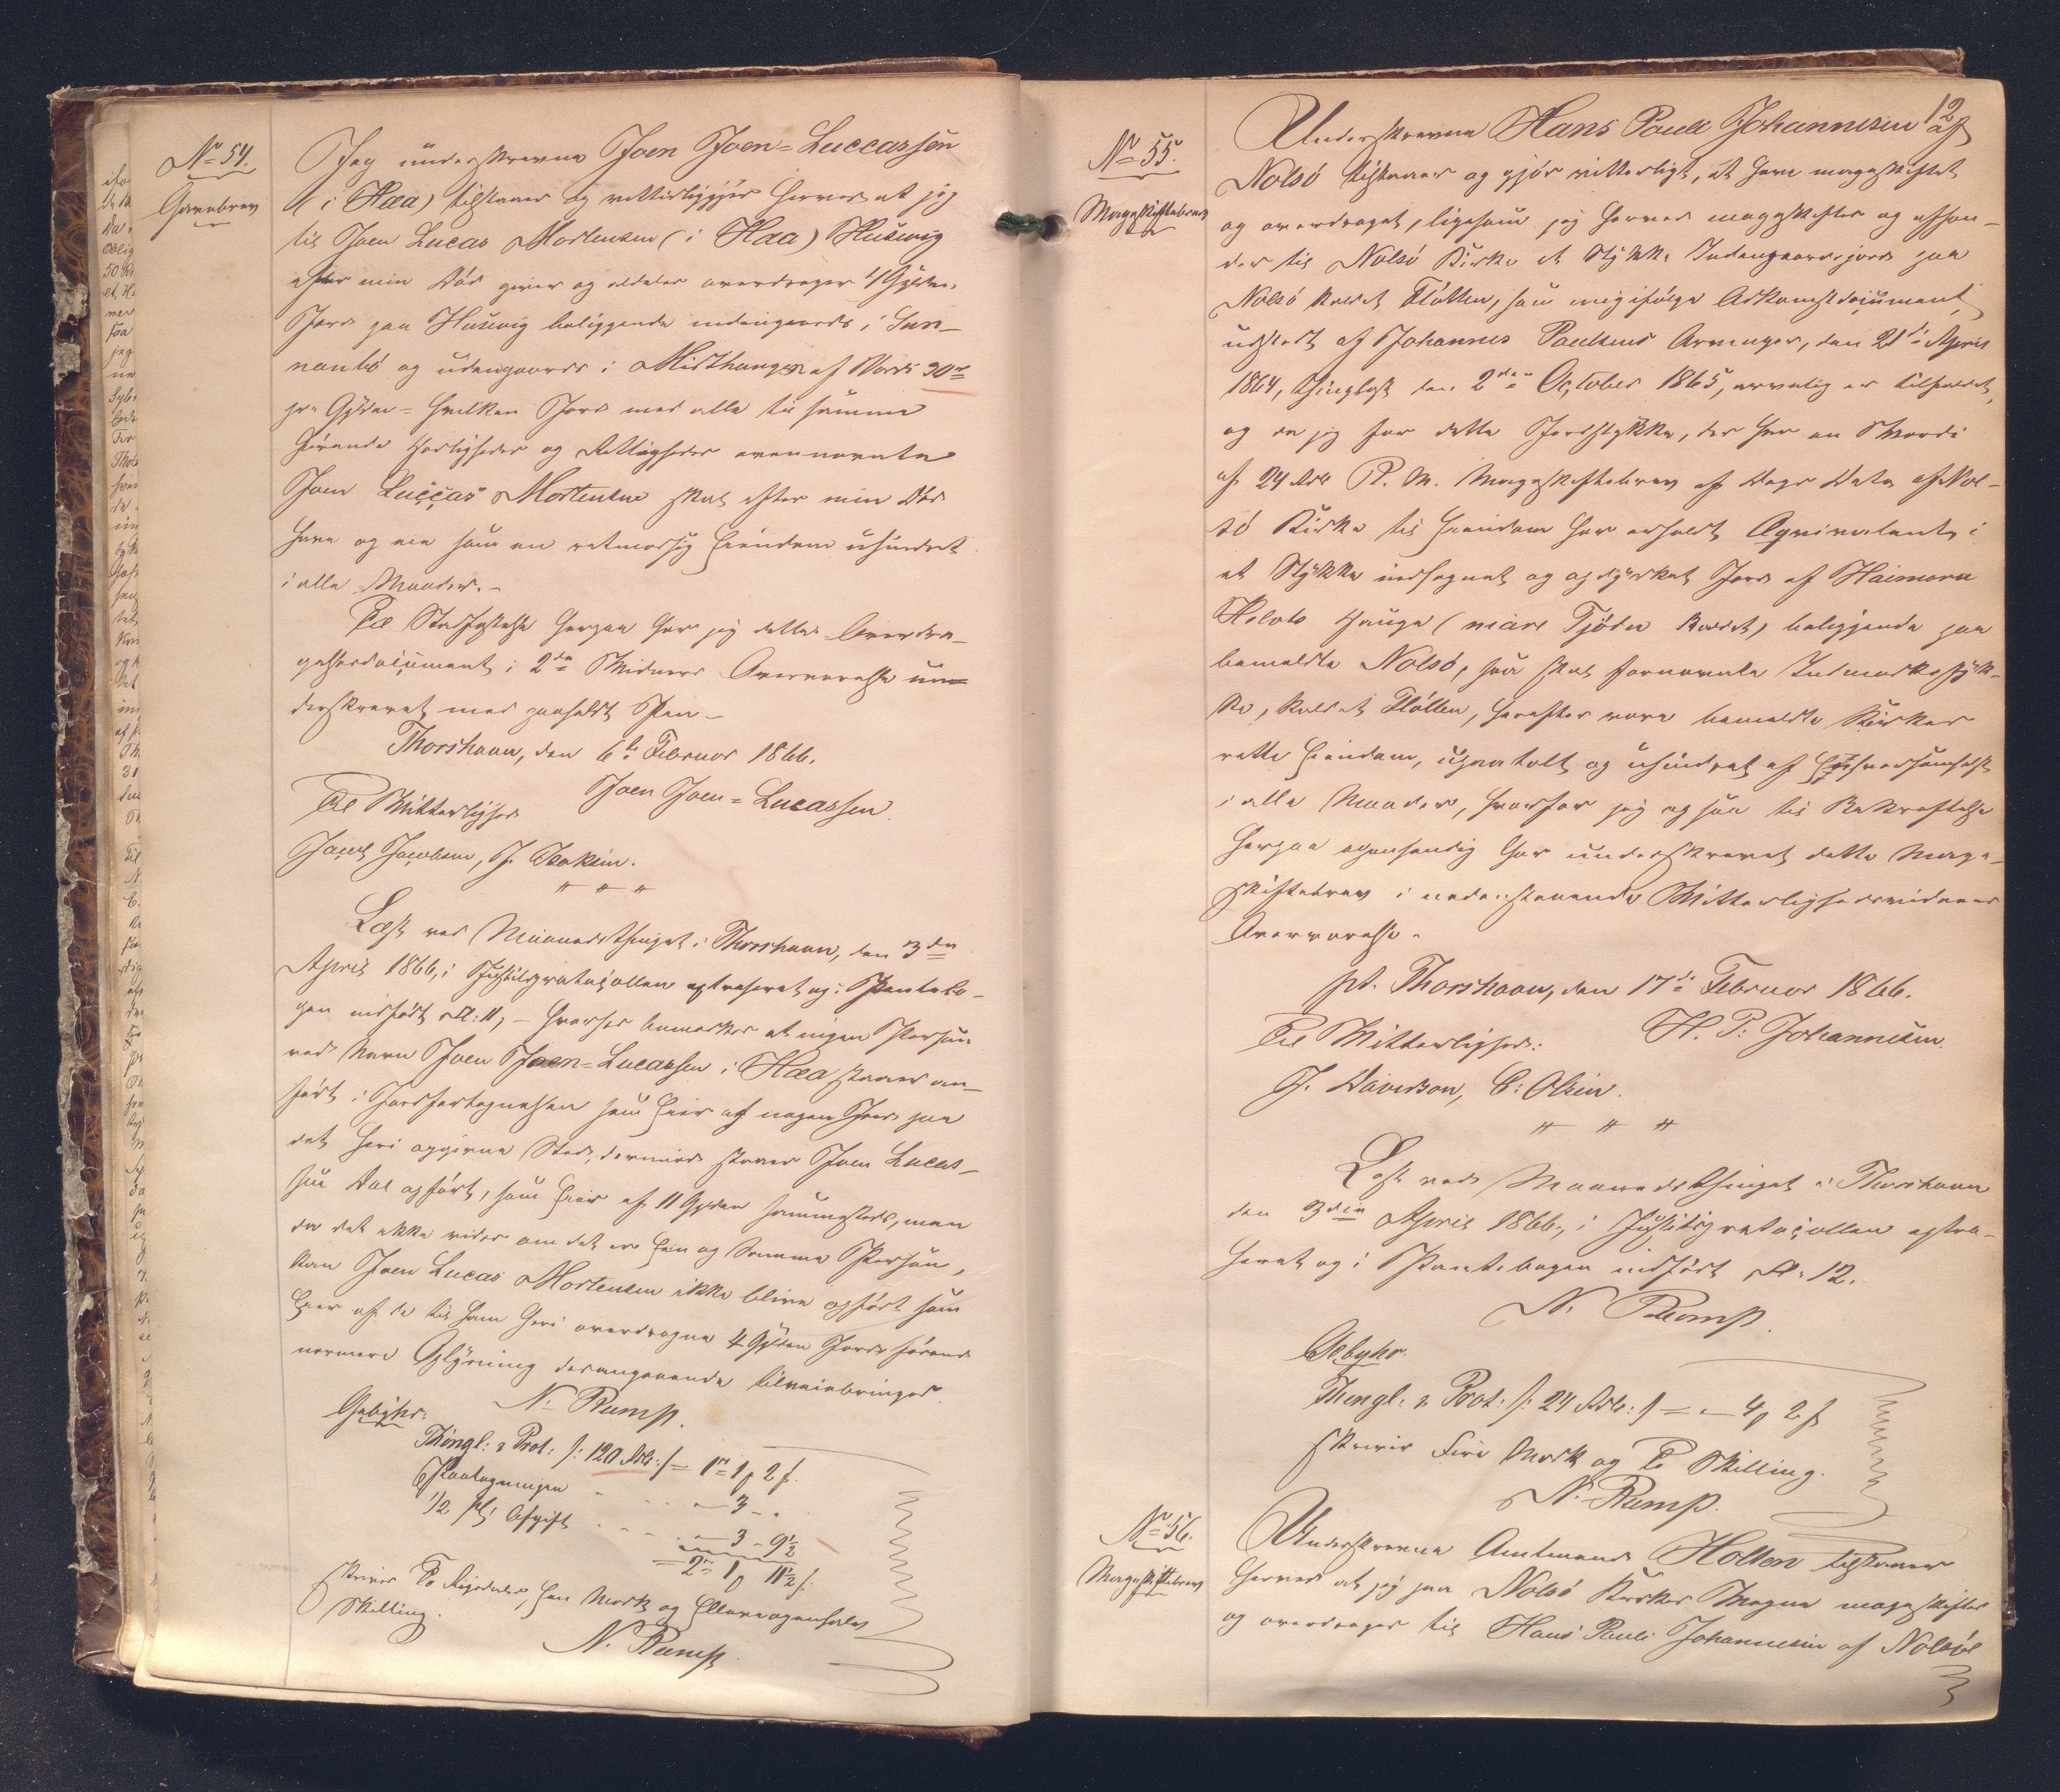 No 54.
Gavebrev
Jeg underskrevne Joen Joen=Luccassen
(i Haa) tilstaaer og vitterliggjør herved at jeg
til Joen Lucas Mortensen (i Haa) Husevig
efter min Død giver og aldeles overdrager 4 Gylden
Jord paa Husevig beliggende indengaards i Sun-
nanbö og udengaards i Misthauge af Værdi 30rd
pr. Gylden = hvilken Jord med alle til samme
hørende Herligheder og Rettigheder ovennævnte
Joen Luccas Mortensen skal efter min Død
have og eie som en retmæssig Eiendom uhindret
i alle Maader.-
Til Stadfæstelse herpaa har jeg dette Overdra-
gelsesdocument i 2de Vidners Overværelse un-
derskrevet med paaholdt Pen-
Thorshavn, den 6te Februar 1866.
Joen Joen=Lucassen.
Til Vitterlighed
Jacob Jacobsen, J. Isaksen.
Læst ved Maanedsthinget i Thorshavn, den 3die
April 1866, i Justitsprotocollen extraheret og i Pantebo-
gen indført Fol: 11, - hvorhos bemærkes at ingen Person
ved Navn Joen Joen=Lucassen i Haa staaer an-
ført i Jordfortegnelsen som Eier af nogen Jord paa
det heri opgivne Sted, derimod staaer Joen Lucas-
sen Dal opført, som Eier af 11 Gylden sammesteds, men
da det ikke vides om det er Een og Samme Person,
kan Joen Lucas Mortensen ikke blive opført som
Eier af de til ham heri overdragne 4 Gylden Jord førend
nærmere Oplysning desangaaende tilveiebringes.
N. Rump.
Gebyhr:
Thingl: & Prot: /: 120 Rdl: / = 1rd 1 , 2 ß.
Paategningen - - - - 3 - .
1/2 pCt Afgift - - - - 3 - 9 1/2
= 2rd 1 , 11 1/2 ß.
skriver To Rigsdaler, Een Mark og Elleve og en halv
Skilling.
N. Rump.
12
No 55.
Mageskiftebrev
Underskrevne Hans Pauli Johannesen af
Nolsö tilstaaer og gjør vitterligt, at have mageskiftet
og overdraget, ligesom jeg herved mageskifter og afhæn-
der til Nolsö Kirke et Stykke Indengaardsjord paa
Nolsö kaldet Fløtten, som mig ifølge Adkomstdocument,
udstedt af Johannes Paulsens Arvinger, den 21de April
1864, thinglyst den 2den October 1865, arvelig er tilfaldet,
og da jeg for dette Jordstykke, der har en Værdi
af 24 Rdl R. M. Mageskiftebrev af Dags Dato af Nol-
sö Kirke til Eiendom har erholdt Æqvivalent i
et Stykke indhegnet og opdyrket Jord af Haimara
Hauge (niare Tjödn kaldet) beliggende paa
bemeldte Nolsö, saa skal fornævnte Indmarksstyk-
ke, kaldet Fløtten, herefter være bemeldte Kirkes
rette Eiendom, upaatalt og uhindret af Enhversomhelst
i alle Maader, hvorfor jeg ogsaa til Bekræftelse
herpaa egenhændig har underskrevet dette Mage-
skiftebrev i nedenstaaende Vitterlighedsvidners
Overværelse.
pt. Thorshavn, den 17de Februar 1866.
H. P. Johannesen.
Til Vitterlighed:
J. Davidson, C: Olsen.
Læst ved Maanedsthinget i Thorshavn
den 3die April 1866, i Justitsprotocollen extra-
heret og i Pantebogen indført Fol: 12.
N. Rump.
Gebyhr.
Thingl: & Prot: /: 24 Rdl: / = - 4 , 2 ß
skriver Fire Mark og To Skilling.
N. Rump.
No 56.
Mageskiftebrev
Underskrevne Amtmand Holten tilstaaer
herved at jeg paa Nolsö Kirkes Vegne mageskifter
og overdrager til Hans Pauli Johannesen af Nolsö et